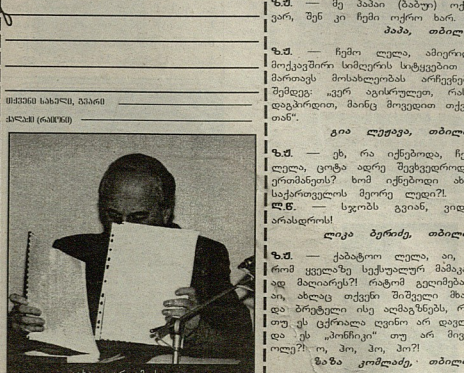 თქვენი სახელი, გვარი
ქალაქი (რაიონი)
ზ.შ. — მე პაპაი (ბაბუი)
ვარ, შენ კი ჩემი ოქრო ხარ.
პაპა, თბილ
ზ.შ. — ჩემო ლელა,
მოქკავშირი სიმღერის სიტყვებით
მართავს მოსახლეობას არჩევნე
შემდეგ: „ვერ აგისრულეთ, რას
დაგპირდით, მაინც მოვედით თქვ
თან“.
გია ლეჟავა, თბილ
ზ.შ. — ეხ, რა იქნებოდა, ჩე
ლელა, ცოტა ადრე შევხვედროდ
ერთმანეთს? ხომ იქნებოდი ახ
საქართველოს მეორე ლედი?!
ლ.წ. — სჯობს გვიან, ვიდ
არასდროს!
ლიკა ბერიძე, თბილ
ზ.შ. — ქაბატონო ლელა, აი,
რომ ყველაზე სექსუალურ მამაკ
ად მაღიარეს?! რატომ გეღიმება
აი, ახლაც თქვენი შიშველი მხა
და ბრეტელი ისე აღმაგზნებს, რ
თუ ეს ცქრიალა ღვინო არ დავლ
და ეს „პონჩიკი“ თუ არ მივ
ოლე?! ო, ჰო, ჰო, ჰო?!
ზაზა კომლაძე, თბილ